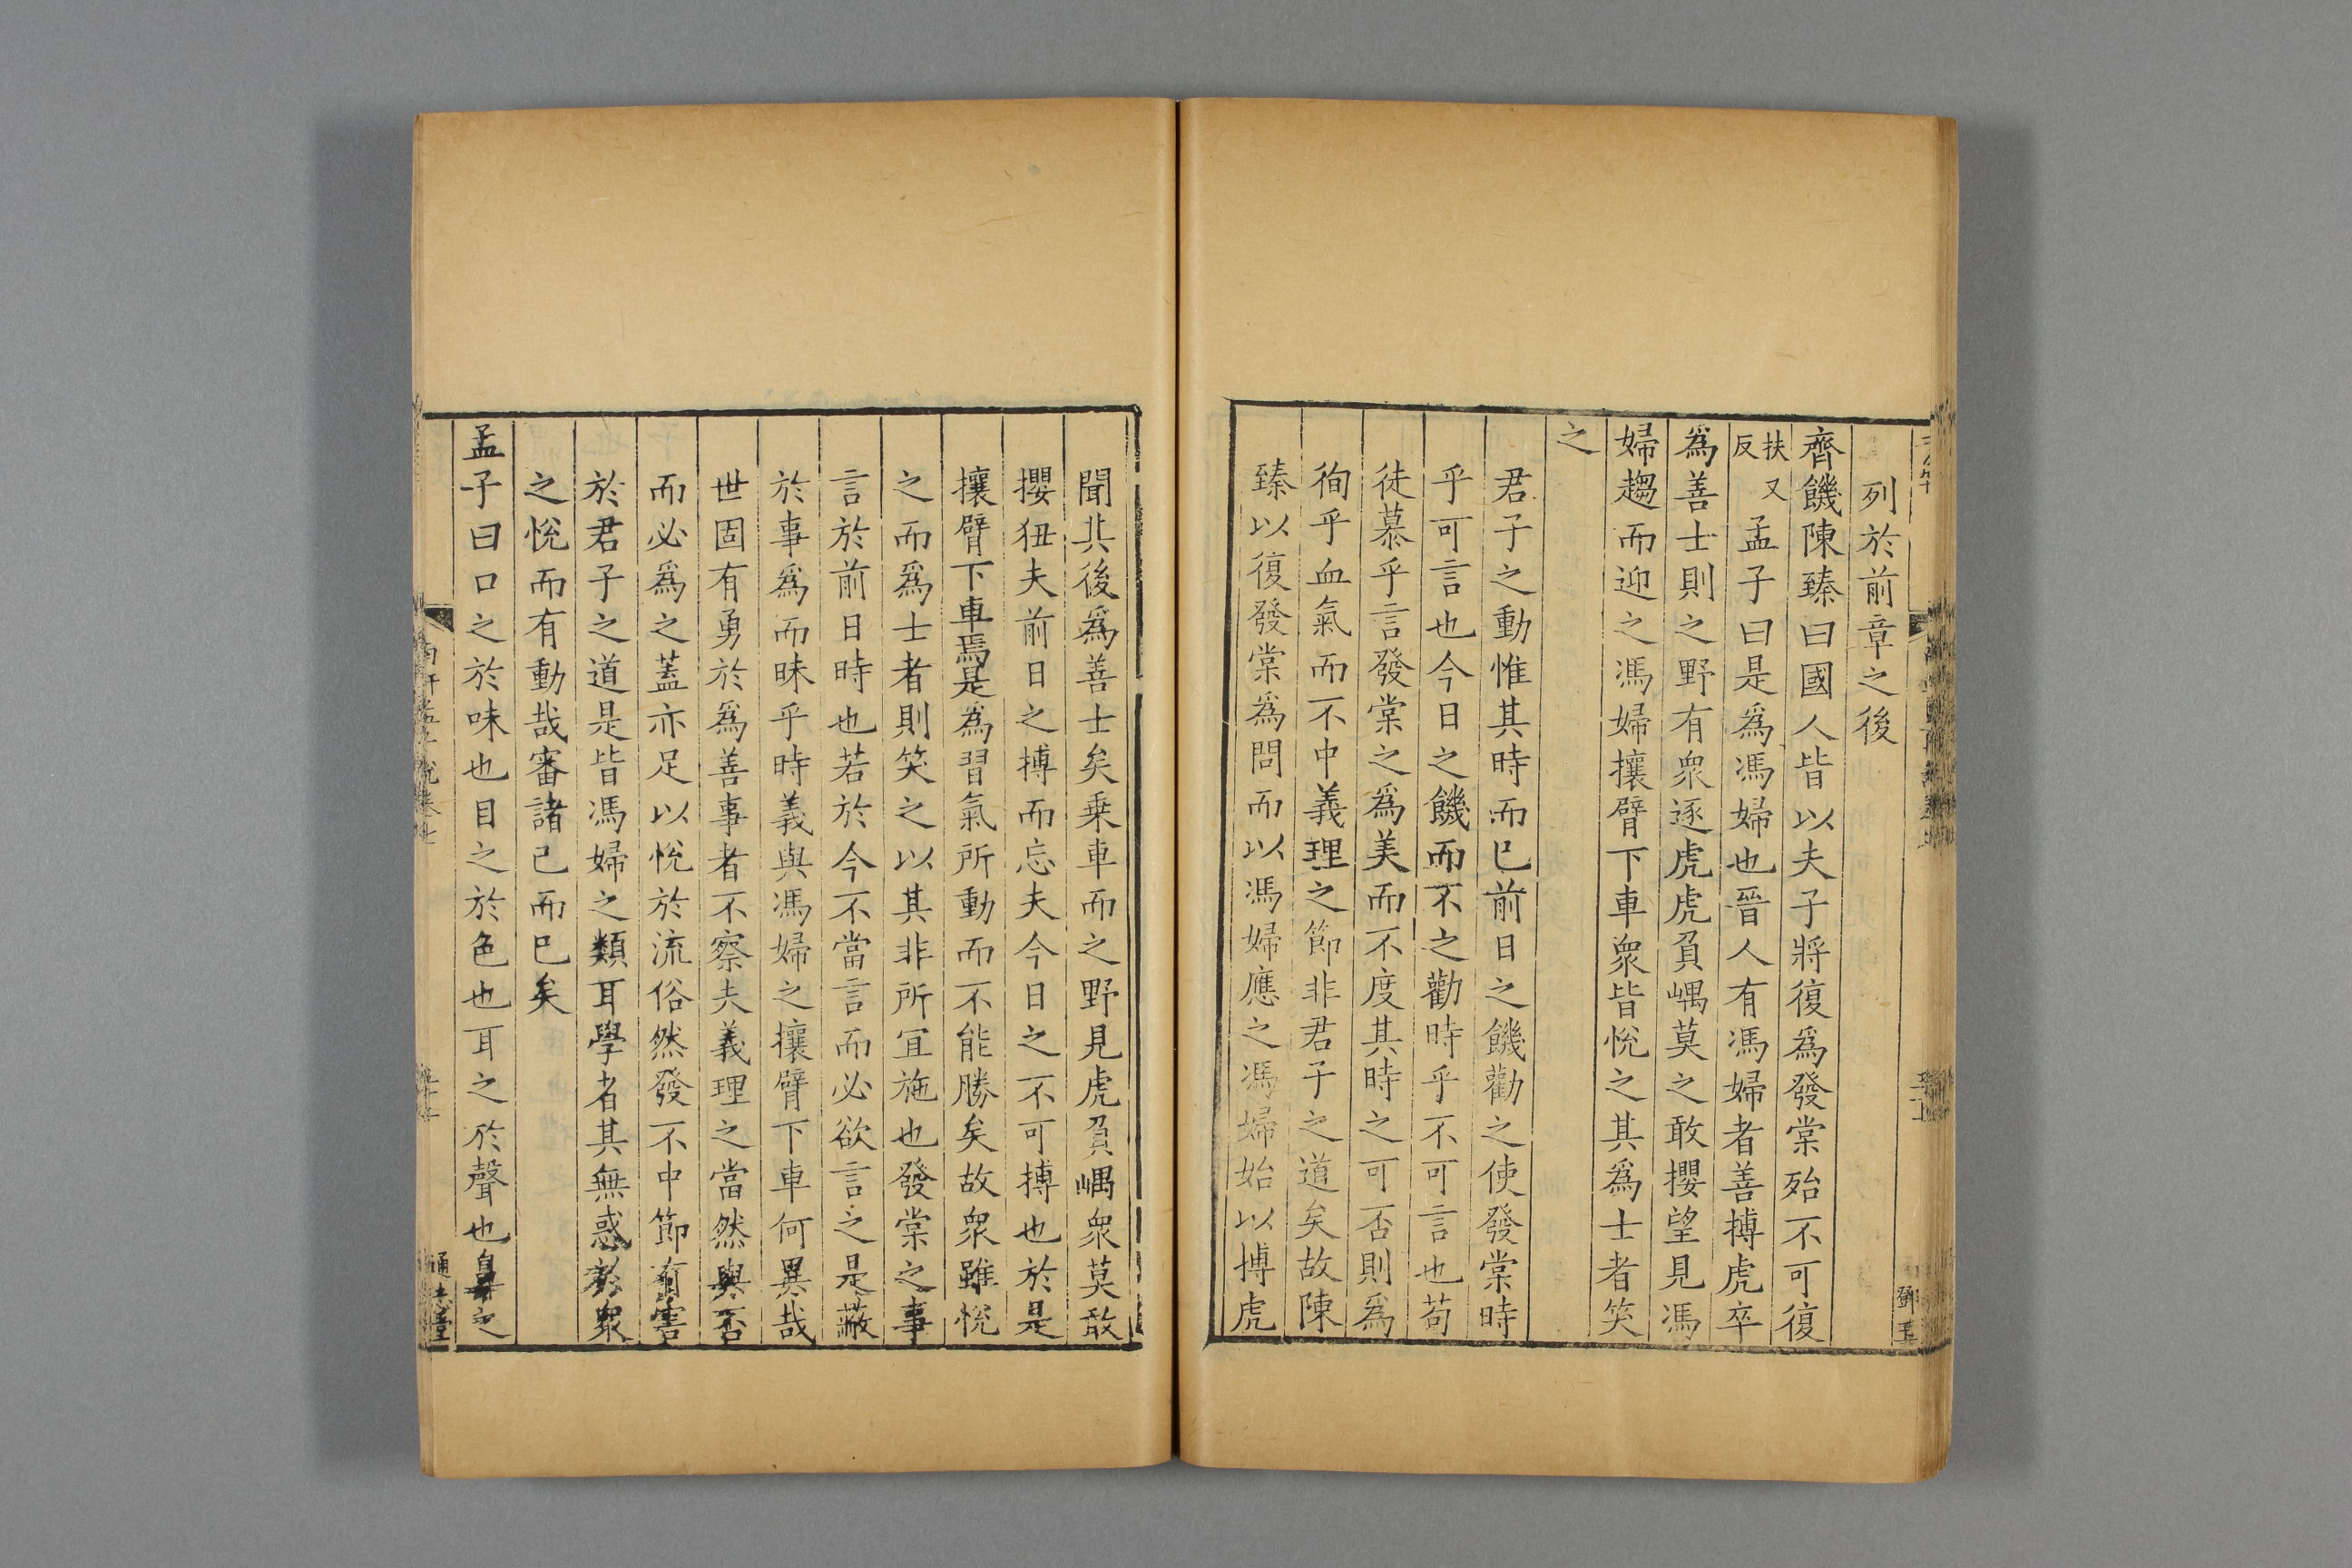 列於前章之後
齊饑陳臻曰國人皆以夫子將復爲發棠殆不可復
扶又反孟子曰是爲馮婦也晉人有馮婦者善搏虎卒
爲善士則之野有衆逐虎虎負嵎莫之敢攖望見馮
婦趨而迎之馮婦攘臂下車衆皆悅之其爲士者笑
之
君子之動惟其時而已前日之饑勸之使發棠時
乎可言也今日之饑而不之勸時乎不可言也苟
徒慕乎言發棠之爲美而不度其時之可否則爲
徇乎血氣而不中義理之節非君子之道矣故陳
臻以復發棠爲問而以馮婦應之馮婦始以搏虎
聞其後爲善士矣乗車而之野見虎負嵎衆莫敢
攖狃夫前日之搏而忘夫今日之不可搏也於是
攘臂下車焉是爲習氣所動而不能勝矣故衆雖悅
之而爲士者則笑之以其非所宜施也發棠之事
言於前日時也若於今不當言而必欲言之是蔽
於事爲而昧乎時義與馮婦之攘臂下車何異哉
世固有勇於爲善事者不察夫義理之當然與否
而必爲之蓋亦足以悅於流俗然發不中節有害
於君子之道是皆馮婦之類耳學者其無惑於衆
之悅而有動哉審諸己而已矣
孟子曰口之於味也目之於色也耳之於聲也鼻之
通志堂